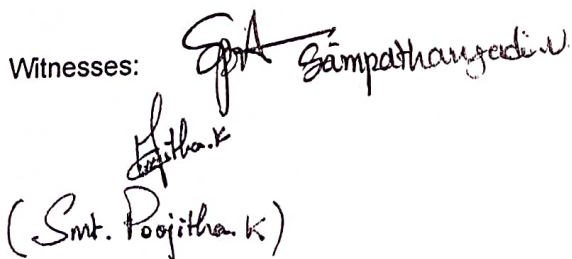 Witnesses: Sampathangadi.N
Poojitha.K
(Smt. Poojitha. K)